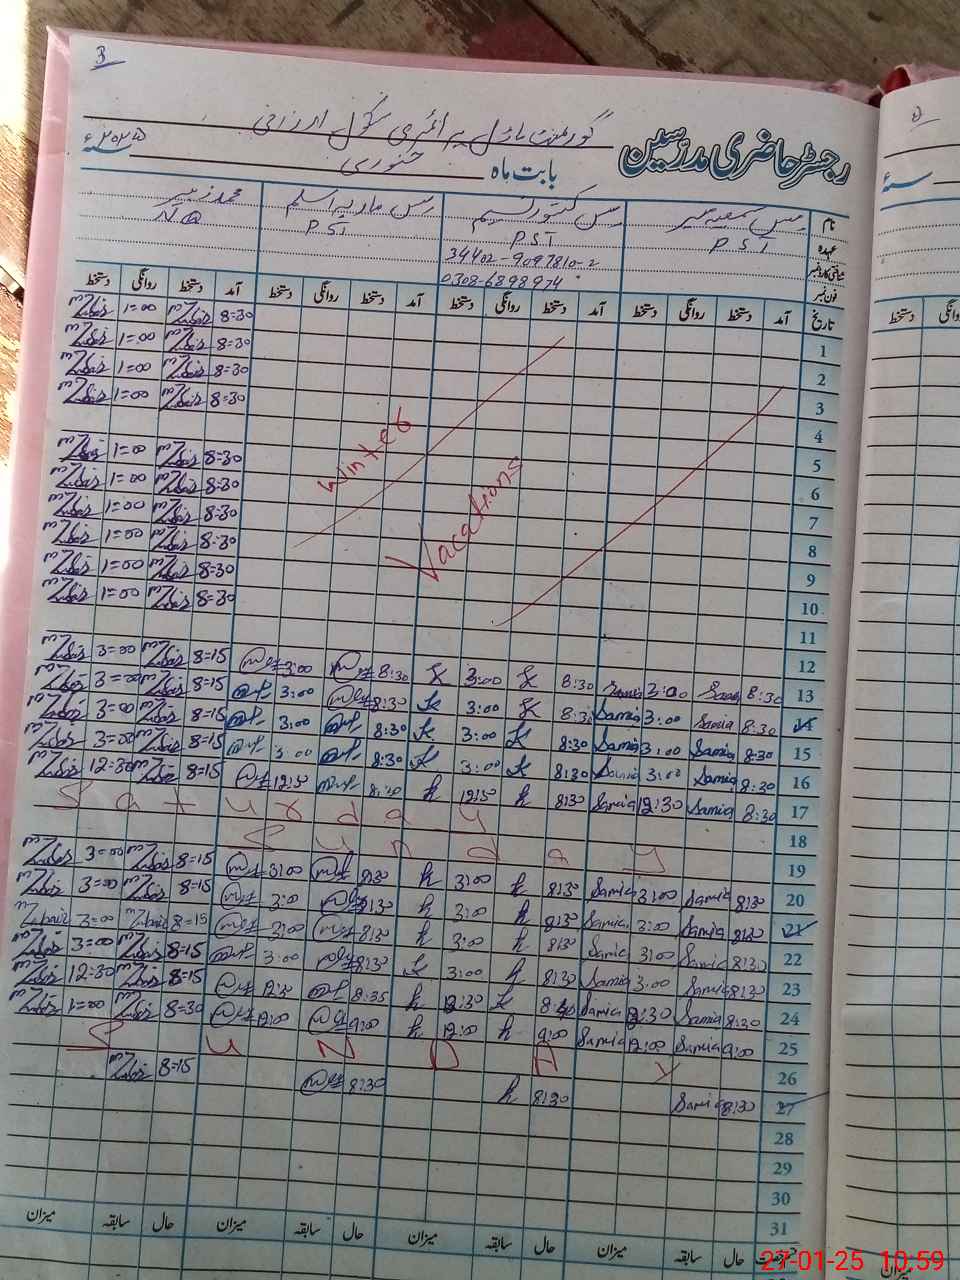 3
گورنمنٹ ماڈل پرائمری سکول ارزانی
رجسٹر حاضری مدرسین
بابت ماہ جنوری سنہ ۲۰۲۵ء
نام مس سمعیہ مس کشور نسیم مس ماریہ اسلم محمد زبیر
عہدہ PST PST PST N.Q
شناختی کارڈ نمبر 34402-9097810-2
فون نمبر 0308-6898974
تاریخ آمد دستخط روانگی دستخط آمد دستخط روانگی دستخط آمد دستخط روانگی دستخط آمد دستخط روانگی دستخط
1 8=30 Zubair 1=00 Zubair
2 8=30 Zubair 1=00 Zubair
3 8=30 Zubair 1=00 Zubair
4 8=30 Zubair 1=00 Zubair
5
6 8=30 Zubair 1=00 Zubair
7 8=30 Zubair 1=00 Zubair
8 8=30 Zubair 1=00 Zubair
9 8=30 Zubair 1=00 Zubair
10 8=30 Zubair 1=00 Zubair
11 8=30 Zubair 1=00 Zubair
Winter
Vacations
12
13 8:30 Samia 3:00 Samia 8:30 3:00 8:30 3:00 8=15 Zubair 3=00 Zubair
14 8:30 Samia 3:00 Samia 8:30 3:00 8:30 3:00 8=15 Zubair 3=00 Zubair
15 8:30 Samia 3:00 Samia 8:30 3:00 8:30 3:00 8=15 Zubair 3=00 Zubair
16 8:30 Samia 3:00 Samia 8:30 3:00 8:30 3:00 8=15 Zubair 3=00 Zubair
17 8:30 Samia 12:30 Samia 8:30 12:30 8:30 12:30 8=15 Zubair 12=30 Zubair
18 Saturday
19 Sunday
20 8:30 Samia 3:00 Samia 8:30 3:00 8:30 3:00 8=15 Zubair 3=00 Zubair
21 8:30 Samia 3:00 Samia 8:30 3:00 8:30 3:00 8=15 Zubair 3=00 Zubair
22 8:30 Samia 3:00 Samia 8:30 3:00 8:30 3:00 8=15 Zubair 3=00 Zubair
23 8:30 Samia 3:00 Samia 8:30 3:00 8:30 3:00 8=15 Zubair 3=00 Zubair
24 8:30 Samia 12:30 Samia 8:40 12:30 8:35 12:30 8=15 Zubair 12=30 Zubair
25 9:00 Samia 12:00 Samia 9:00 12:00 9:00 12:00 8=30 Zubair 1=00 Zubair
26 SUNDAY
27 8:30 Samia 8:30 8:30 8=15 Zubair
28
29
30
31
رخصت حال سابقہ میزان حال سابقہ میزان حال سابقہ میزان حال سابقہ میزان
سنہ
دستخط روانگی
میزان
27-01-25 10:59